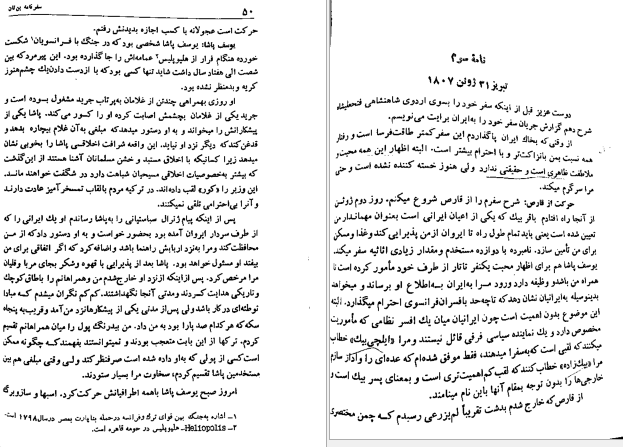 سفرنامه بن‌تان
۵۰
حرکت است عجولانه با کسب اجازه بدیدنش رفتم.
یوسف پاشا: یوسف پاشا شخصی بود که در جنگ با فرانسویان۱ شکست
خورده هنگام فرار از هلیوپلیس۲ عمامه‌اش را جا گذارده بود. این پیرمرد که بین
شصت الی هفتاد سال داشت شاید تنها کسی بود که با از دست دادن یک چشم هنوز
کریه و بدمنظر نشده بود.
او روزی بهمراهی چند تن از غلامان به پرتاب جرید مشغول بوده است و
جرید یکی از غلامان بچشمش اصابت کرده او را کور می‌کند. پاشا یکی از
پیشکارانش را میخواند و به او دستور میدهد که مبلغی به آن غلام بیچاره بدهد و
قدغن کند که دیگر نزد او نیاید. این واقعه شرافت اخلاقی پاشا را بخوبی نشان
میدهد زیرا کسانیکه با اخلاق مستبد و خشن مسلمانان آشنا هستند از این گذشت
که بیشتر بخصوصیات اخلاقی مسیحیان شباهت دارد در شگفت خواهند ماند.
این وزیر را «کور» لقب داده‌اند. در ترکیه مردم بالقاب تمسخرآمیز عادت دارند
و آنرا بی‌احترامی تلقی نمیکنند.
پس از اینکه پیام ژنرال سباستیانی را به پاشا رساندم او یک ایرانی را که
از طرف سردار ایروان آمده بود بحضور خواست و به او دستور داد که از من
محافظت کند و مرا به نزد اربابش راهنما باشد و اضافه کرد که اگر اتفاقی برای من
بیفتد او مسئول خواهد بود. پاشا بعد از پذیرایی با قهوه و شکر بجای مربا و قلیان
مرا مرخص کرد. پس از اینکه از نزد او خارج شدم من و همراهانم را باطاق کوچک
و تاریکی هدایت کردند و مدتی آنجا نگهداشتند. کم‌کم نگران میشدم که مبادا
توطئه‌ای در کار باشد ولی پس از مدتی یکی از پیشکارها نزد من آمد و قریب به پنجاه
سکه که هر کدام صد پارا بود به من داد. من بیدرنگ پول را میان همراهانم تقسیم
کردم. ترکها از این بابت متعجب بودند و نمیتوانستند بفهمند که چگونه ممکن
است کسی از پولی که به او داده شده است صرفنظر کند ولی وقتی مبلغی هم بین
مستخدمین پاشا تقسیم کردم، سخاوت مرا بسیار ستودند.
امروز صبح یوسف پاشا باهمه اطرافیانش حرکت کرد. اسبها و ساز و برگ
۱ــ اشاره به جنگ بین قوای ترک و فرانسه در حمله بناپارت بمصر در سال ۱۷۹۸ است.
۲ــ Heliopolis هلیوپلیس در حومه قاهره است.
نامهٔ سوم
تبریز ۳۱ ژوئن ۱۸۰۷
دوست عزیز قبل از اینکه سفر خود را بسوی اردوی شاهنشاهی فتحعلیشاه
شرح دهم گزارش جریان سفر خود را به ایران برایت می‌نویسم.
از وقتی که بخاک ایران پا گذاردم این سفر کمتر طاقت‌فرسا است و رفتار
همه نسبت بمن با نزاکت‌تر و با احترام بیشتر است. البته اظهار این همه محبت و
ملاطفت ظاهری است و حقیقتی ندارد ولی هنوز خسته کننده نشده است و حتی
مرا سرگرم میکند.
حرکت از قارص: شرح سفرم را از قارص شروع میکنم. روز دوم ژوئن
از آنجا راه افتادم باقر بیک که یکی از اعیان ایرانی است بعنوان مهماندار من
تعیین شده است یعنی باید تمام طول راه تا ایروان از من پذیرایی کند و غذا و مسکن
برای من تأمین سازد. نامبرده با دوازده مستخدم و مقدار زیادی اثاثیه سفر میکند.
یوسف پاشا هم برای اظهار محبت یکنفر تاتار از طرف خود مأمور کرده است تا
همراه من باشد و وظیفه دارد ورود مرا به ایران به اطلاع او برساند و میخواهد
بدینوسیله به ایرانیان نشان دهد که تا چه حد با افسران فرانسوی احترام میگذارد. البته
این موضوع بدون اهمیت است چون ایرانیان میان یک افسر نظامی که مأموریت
مخصوص دارد و یک نماینده سیاسی فرقی قائل نیستند و مرا «ایلچی بیک» خطاب
میکنند که لقبی است که به سفرا میدهند، فقط موفق شده‌ام که عده‌ای را وادار سازم
مرا «بیک‌زاده» خطاب کنند که لقب کم‌اهمیت‌تری است و بمعنای پسر بیک است و
خارجی‌ها را بدون توجه بمقام آنها باین نام مینامند.
از قارص که خارج شدم بدشت تقریباً لم‌یزرعی رسیدم که چمن مختصری